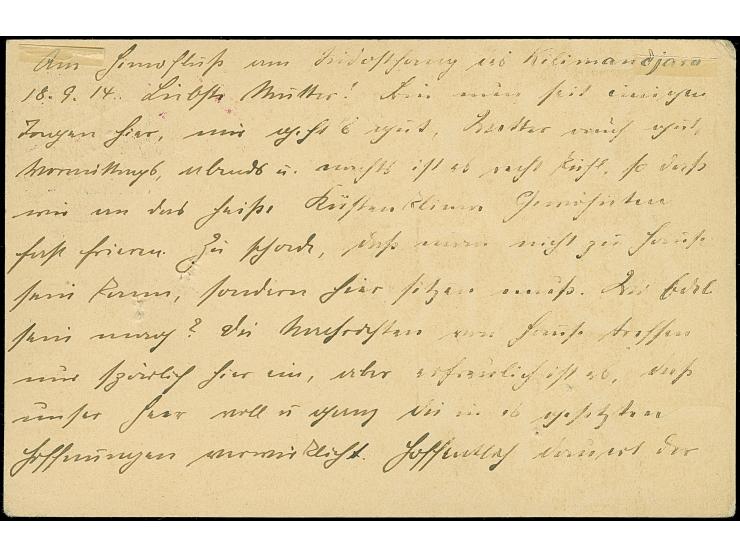 Am Himofluß am Südosthang des Kilimandjaro
18.9.14. Liebste Mutter! Bin nun seit einigen
Tagen hier, mir geht's gut, Wetter auch gut,
Vormittags, abends u. nachts ist es recht kühl, so daß
wir an das heiße Küstenklima Gewöhnten
fast frieren. Zu schade, daß man nicht zu Hause
sein kann, sondern hier sitzen muß.
sein mag? Die Nachrichten von Hause treffen
nur spärlich hier ein, aber erfreulich ist es, daß
unser Heer voll u ganz die in es gesetzten
Hoffnungen verwirklicht. Hoffentlich dauert der